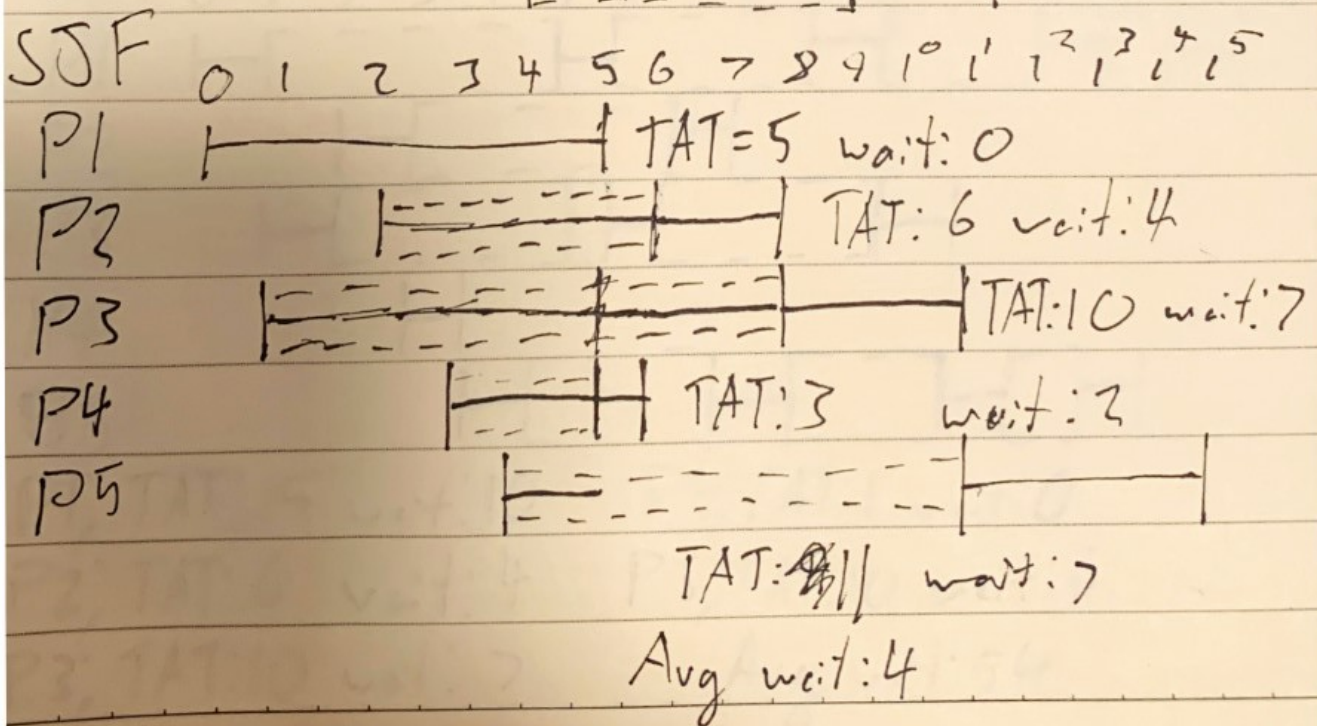 SJF 0 1 2 3 4 5 6 7 8 9 10 11 12 13 14 15
P1 TAT=5 wait: 0
P2 TAT: 6 wait: 4
P3 TAT: 10 wait: 7
P4 TAT: 3 wait: 2
P5
TAT: 11 wait: 7
Avg wait: 4